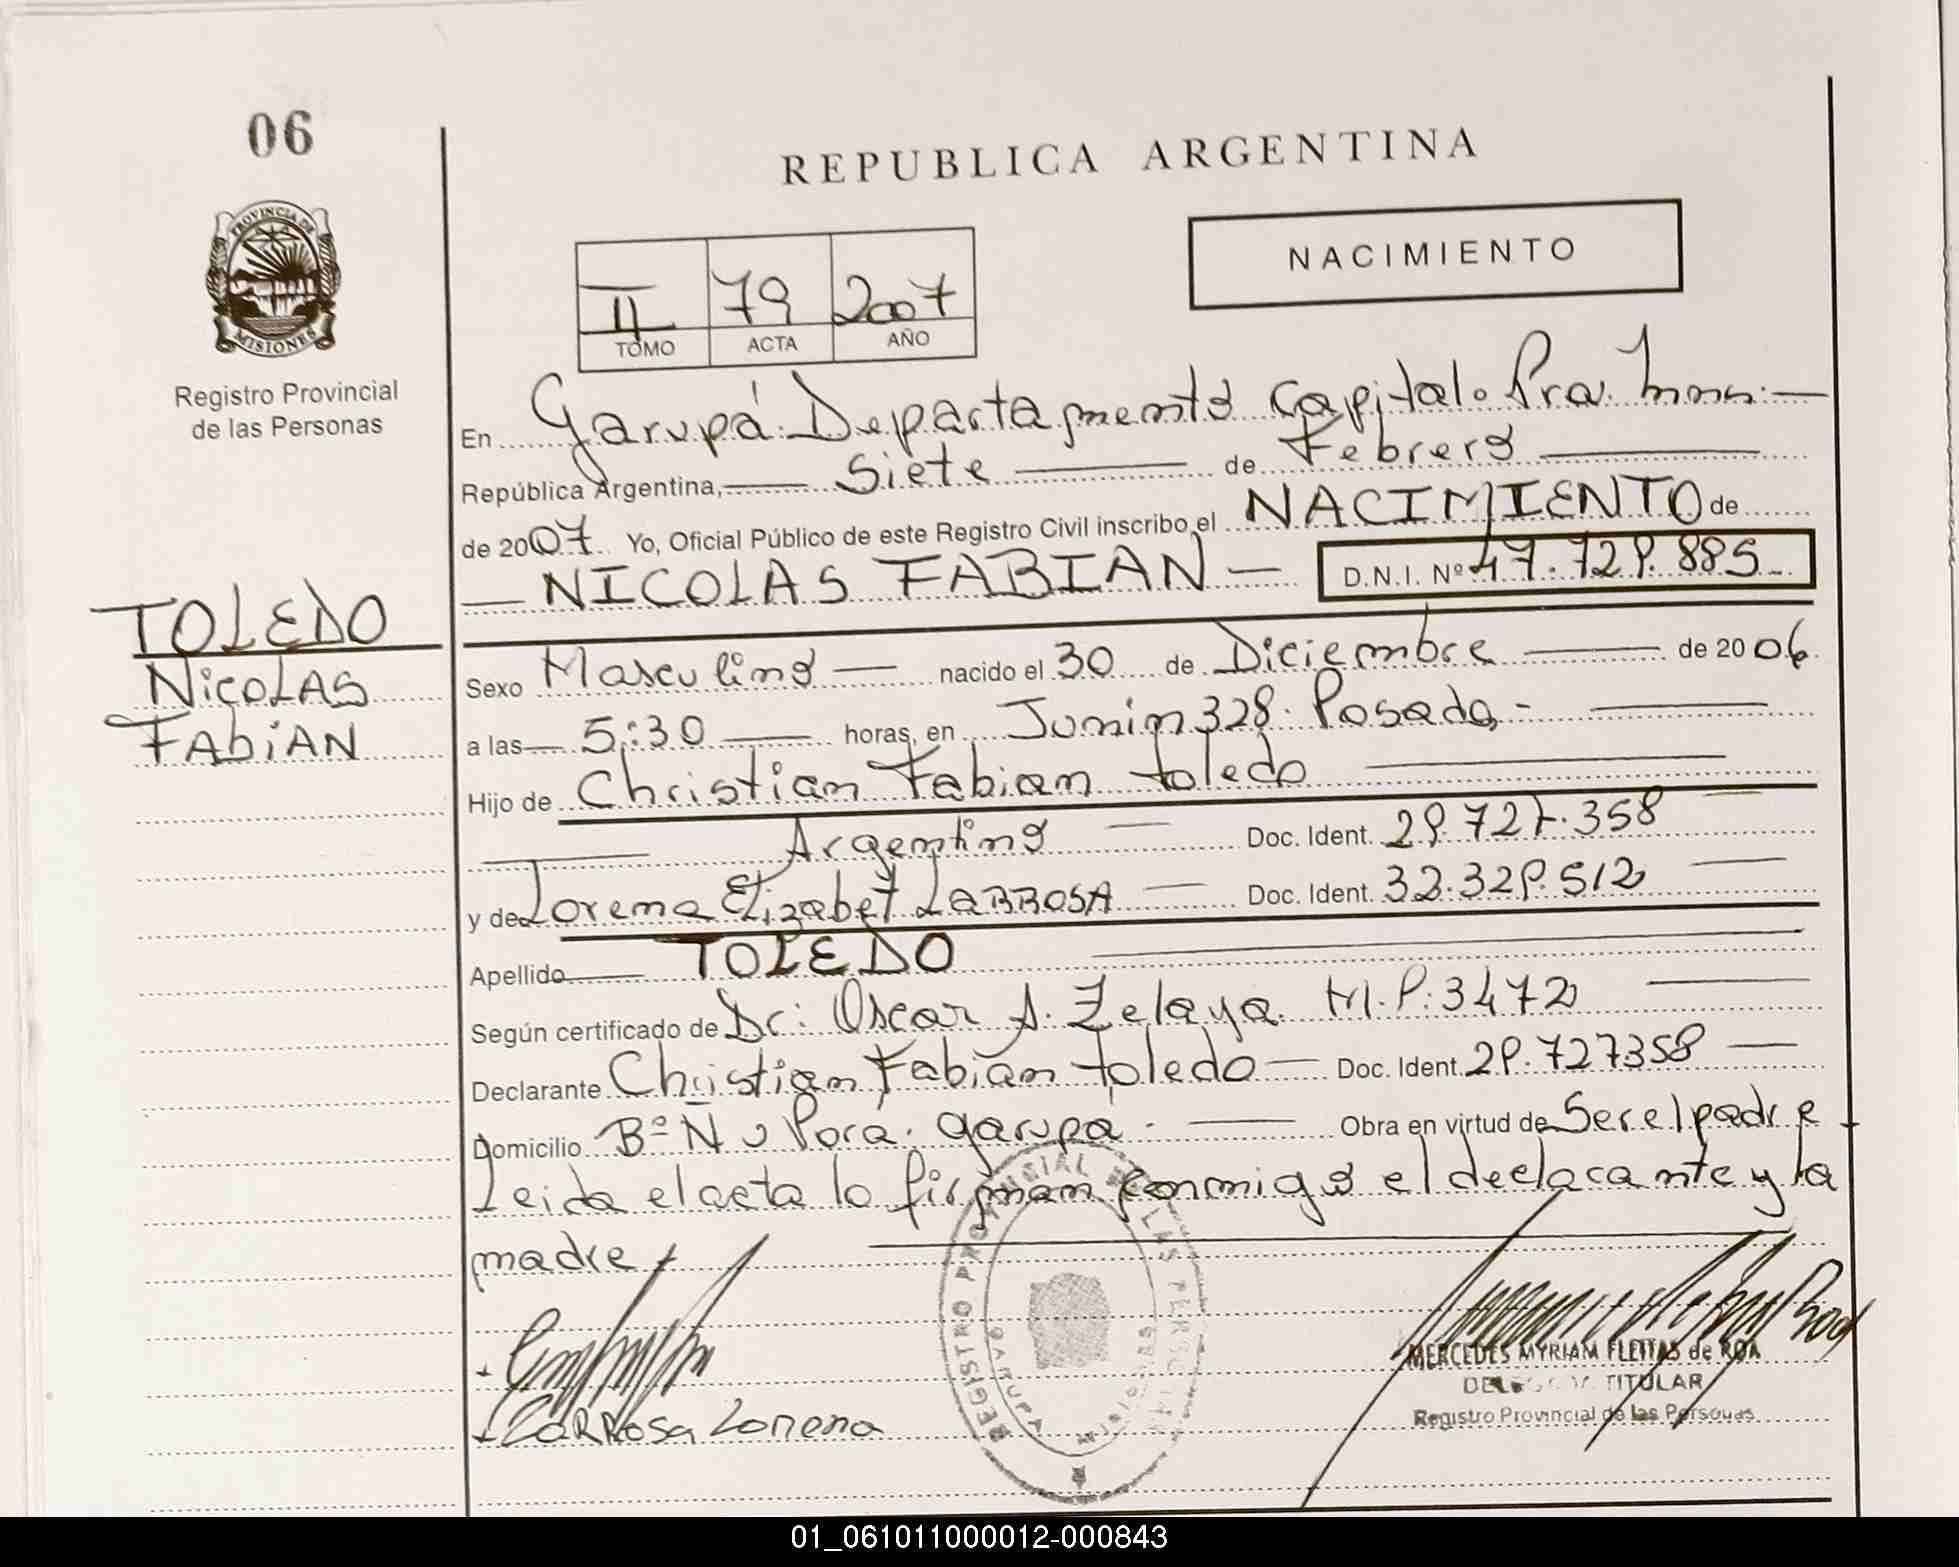 06
REPUBLICA ARGENTINA
PROVINCIA DE
MISIONES
Registro Provincial
de las Personas
NACIMIENTO
II 79 2007
TOMO ACTA AÑO
En Garupá Departamento Capital. Pra. Mnes:
República Argentina, Siete de Febrero
de 2007 Yo, Oficial Público de este Registro Civil inscribo el NACIMIENTO de
NICOLAS FABIAN D.N.I. Nº 47.729.885
TOLEDO
NicoLAS
FAbiAN
Sexo Masculino nacido el 30 de Diciembre de 2006
a las 5:30 horas, en Junin 328. Posadas
Hijo de Christian Fabian toledo
Argentino Doc. Ident. 29.727.358
y de Lorena Elizabet LARROSA Doc. Ident. 32.329.512
Apellido TOLEDO
Según certificado de Dr: Oscar A. Zelaya. M.P: 3472
Declarante Christian Fabian toledo Doc. Ident. 29.727358
Domicilio Bº Ñu Porá. garupá. Obra en virtud de Ser el padre
Leida el acta lo firman conmigo el declarante y la
madre
REGISTRO PROVINCIAL DE LAS PERSONAS
GARUPA
MISIONES
LARROSA Lorena
MERCEDES MYRIAM FLEITAS de ROA
TITULAR
Registro Provincial de las Personas
01_061011000012-000843